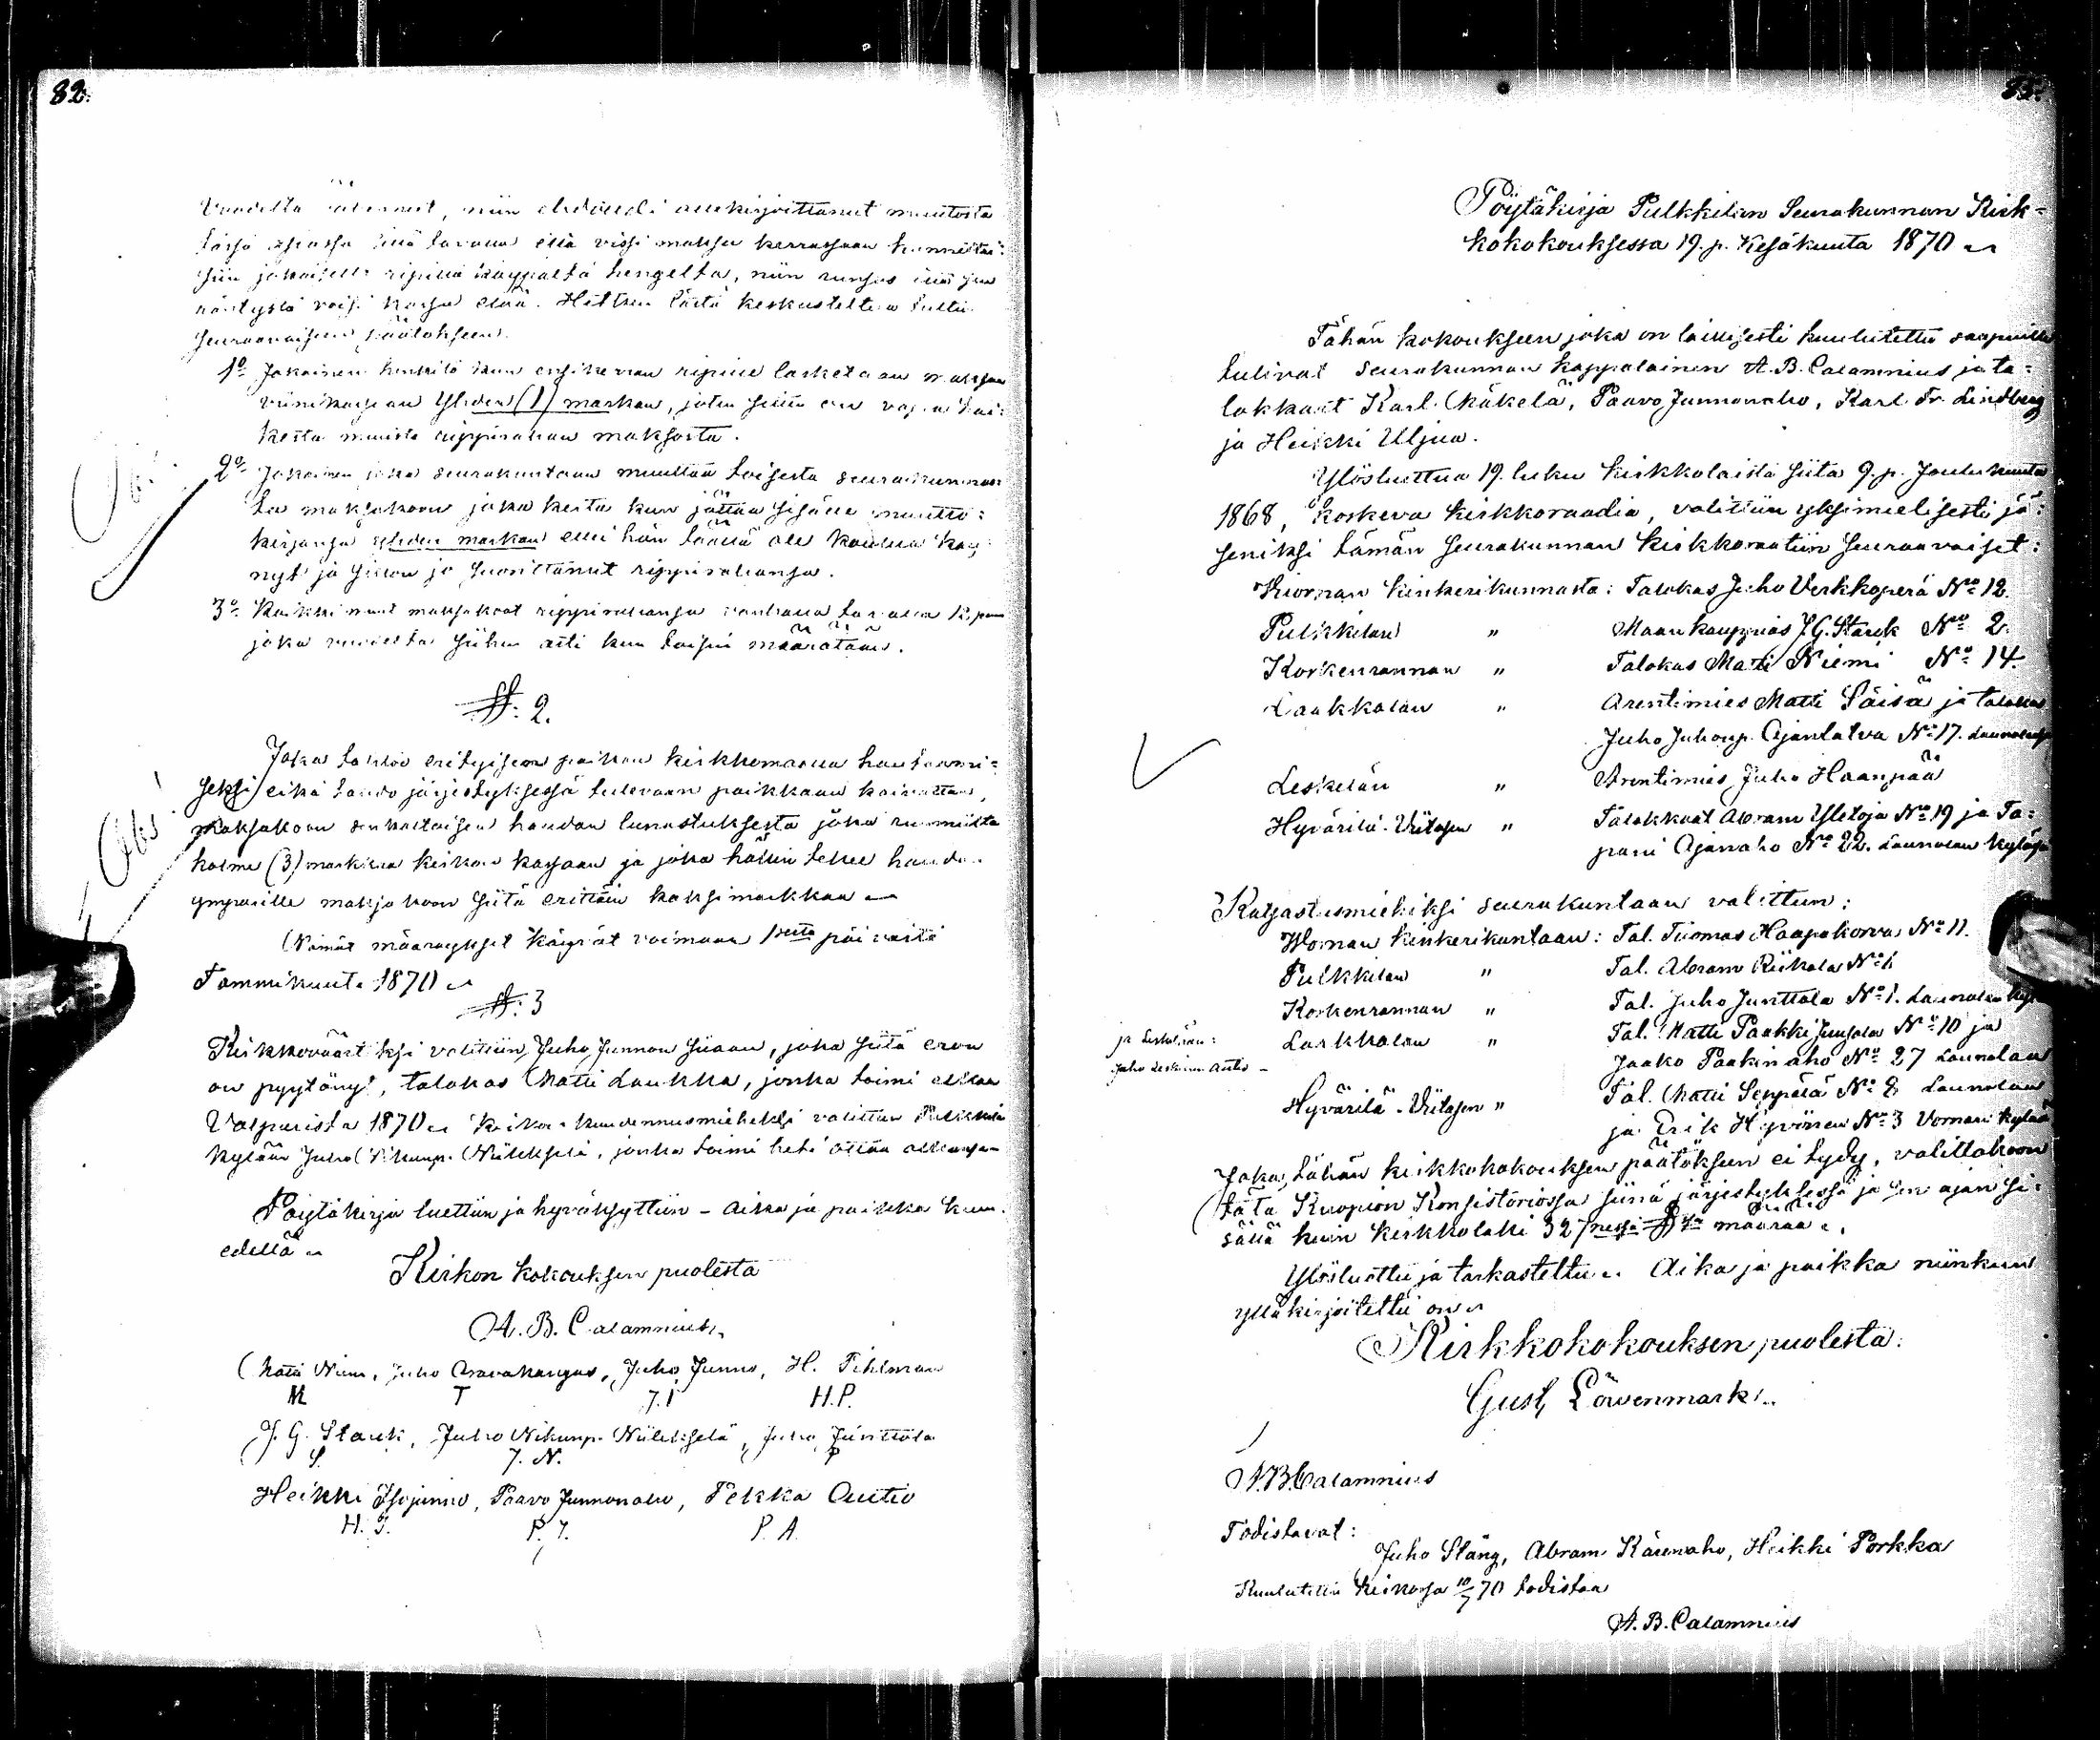 82.
Vuodelta, niin allekirjoittanut muutosta
tässä asiassa sillä tavalla että vissi maksu kerrassaan
jokaiselta ripillä käypältä hengeltä, niin
kassa elää. Hetken tästä keskusteltua tultiin
seuraavaiseen päätökseen.
1o Jokainen henkilö kun ensikerran ripille lasketaan maksaa
viinikassaan yhden (1) markan, joten hän on vapaa kai-
kesta muusta rippirahan maksosta.
2o Jokainen joka seurakuntaan muuttaa toisesta seurakunnas-
ta maksakoon joka kerta kun jättää sisälle muutto-
kirjansa yhden markan ellei hän täällä ole koulua käy-
nyt ja silloin jo suorittanut rippirahansa.
3o Kaikki muut maksakoot rippirahansa vanhalla tavalla 12 penn
joka vuodelta siihen asti kun toisin määrätään.
§: 2.
Joka tahtoo erityisen paikan kirkkomaalla hautaami-
seksi eikä taudo järjestyksessä tulevaan paikkaan kaivattaa,
maksakoon senkaltaisen haudan lunastuksesta joka ruumiilta
kolme (3) markkaa kirkon kassaan ja joka häkin tekee haudan
ympärille maksakoon siitä erittäin kaksi markkaa
Nämät määräykset käyvät voimaan 1sestä päivästä
Tammikuuta 1870
§: 3
Kirkkoväärtiksi valittiin Juho Junnon siaan, joka siitä eron
on pyytänyt, talokas Matti Laukka, jonka toimi alkaa
Valpurista 1870 kirkon kunnennusmieheksi valittiin Pulkkila
kylään Juho Nikunp. Niileksele, jonka toimi heti ottaa alkaunsa
Pöytäkirja luettiin ja hyväksyttiin - aika ja paikka kuin
edellä
Kirkon kokouksen puolesta
A. B. Calamnius
Matti Niemi, Juho Aravakangas, Juho Junno, H. Pihlman
M T J. J H. P.
J. G. Stark, Juho Nikunp. Niilekselä, Juho Junttola
S. J. N. P
Heikki Isojunno, Paavo Junnonaho, Pekka Autio
H. I. P. J. P. A.
Obs!
83.
Pöytäkirja Pulkkilan Seurakunnan Kirk-
kokokouksessa 19. p. Kesäkuuta 1870
Tähän kokoukseen joka on laillisesti kuulutettu saapuville
tulivat seurakunnan kappalainen A. B. Calamnius ja ta-
lokkaat Karl Mäkelä, Paavo Junnonaho, Karl Fr. Lindberg
ja Heikki Uljua.
Ylösluettua 19. luku kirkkolaista siitä 9. p. Joulukuuta
1868, koskeva kirkkoraadia, valittiin yksimielisesti jä-
seniksi tämän seurakunnan kirkkoraatiin seuraavaiset:
Vuornan kinkerikunnasta: Talokas Juho Verkkoperä No 12.
Pulkkilan " Maan kauppias J. G. Stark No 2.
Korkenrannan " Talokas Matti Niemi No 14.
Laakkolan " Arentimies Matti Päisä ja talokas
Juho Juhonp. Ajantatva No 17. Launolasta
Leskelän " Arentimies Juho Haanpää
Hyvärilä-Viitasen " Talokkaat Abram Yletoja No 19 ja Ta-
pani Ajanaho No 22. Launolan kylästä
Katsastusmiehiksi seurakuntaan valittiin:
Vornan kinkerikuntaan: Tal. Tuomas Haapakorva No 11.
Pulkkilan " Tal. Abram Riikola No 1
Korkenrannan " Tal. Juho Junttola No 1. Launolan kyl
Laakkolan " Tal. Matti Paakki No 10 ja
ja Leskelään:
Juho Leskinen Autio -
Jaako Paakinaho No 27 Launolan
Hyvärilä-Viitasen " Tal. Matti Seppälä No 8 Launolan
ja Erik Hyvönen No 3 Vornan kylää
Joka tähän kirkkokokouksen päätöksen ei tydy, valittakoon
tätä Kuopion Konsistoriossa siinä järjestyksessä ja sen ajan si-
sällä kuin kirkkolaki 32 määrää.
Ylösluettu ja tarkastettu. Aika ja paikka niinkuin
yllä kirjoitettu on
Kirkkokokouksen puolesta:
Gust. Löwenmark.
A. B. Calamnius
Todistavat:
Juho Stång, Abram Kärenaho, Heikki Porkka
Kuulutettu kirkossa 10/7 70 todistaa
A. B. Calamnius